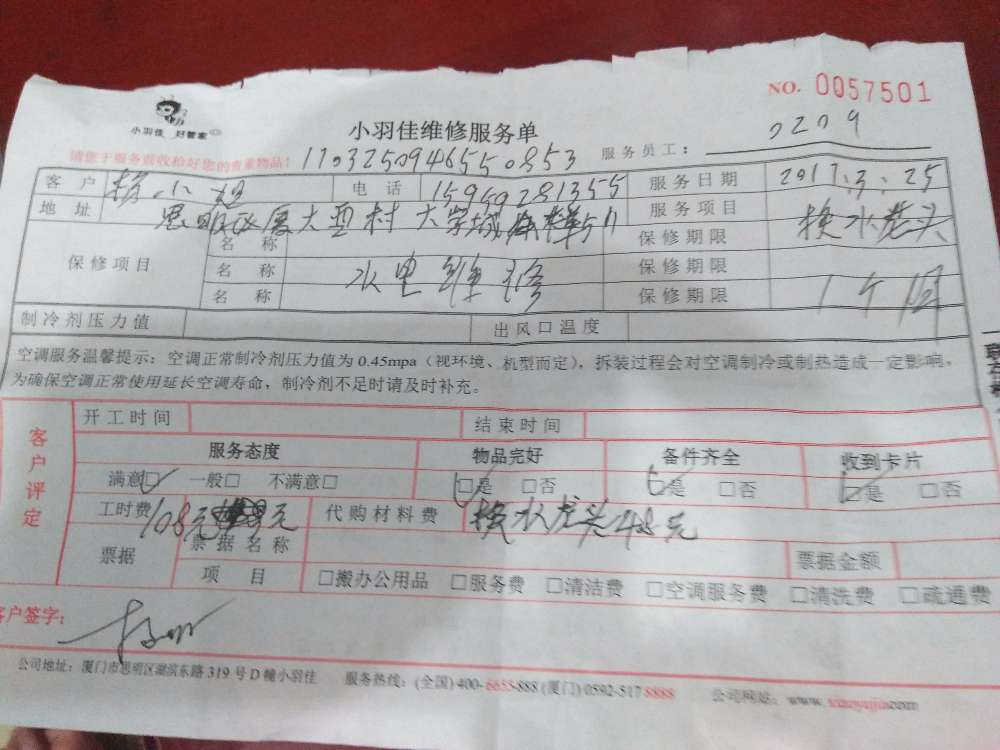 NO. 0057501
小羽佳 好管家
小羽佳维修服务单
请您于服务前收拾好您的贵重物品! 1703250946550853 服务员工: 0209
客户 小姐 电话 15960281355 服务日期 2017.3.25
地址 思明区厦大西村大学城 511 服务项目 换水龙头
保修项目 名称 保修期限
名称 水电维修 保修期限
名称 保修期限 1个月
制冷剂压力值 出风口温度
空调服务温馨提示: 空调正常制冷剂压力值为 0.45mpa (视环境、机型而定), 拆装过程会对空调制冷或制热造成一定影响,
为确保空调正常使用延长空调寿命, 制冷剂不足时请及时补充。
客户评定
开工时间 结束时间
服务态度 物品完好 备件齐全 收到卡片
满意□ 一般□ 不满意□ □是 □否 □是 □否 □是 □否
工时费 108元 元 代购材料费 换水龙头48元
票据 票据名称 票据金额
项目 □搬办公用品 □服务费 □清洁费 □空调服务费 □清洗费 □疏通费
客户签字:
公司地址: 厦门市思明区湖滨东路 319 号 D 幢小羽佳 服务热线: (全国) 400-6655-888 (厦门) 0592-517 8888 公司网站: www.xiaoyujia.com